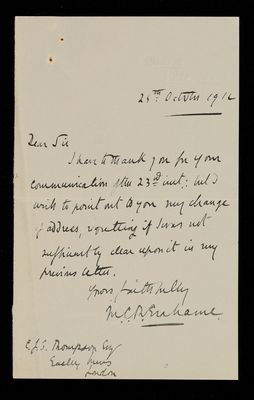 25th October 1912
Dear Sir
I have to thank you for your
communication of the 23rd inst; but I
wish to point out to you my change
of address, regretting if I was not
sufficiently clear upon it in my
previous letter.
Yours faithfully
C.J.S. Thompson Esq
London